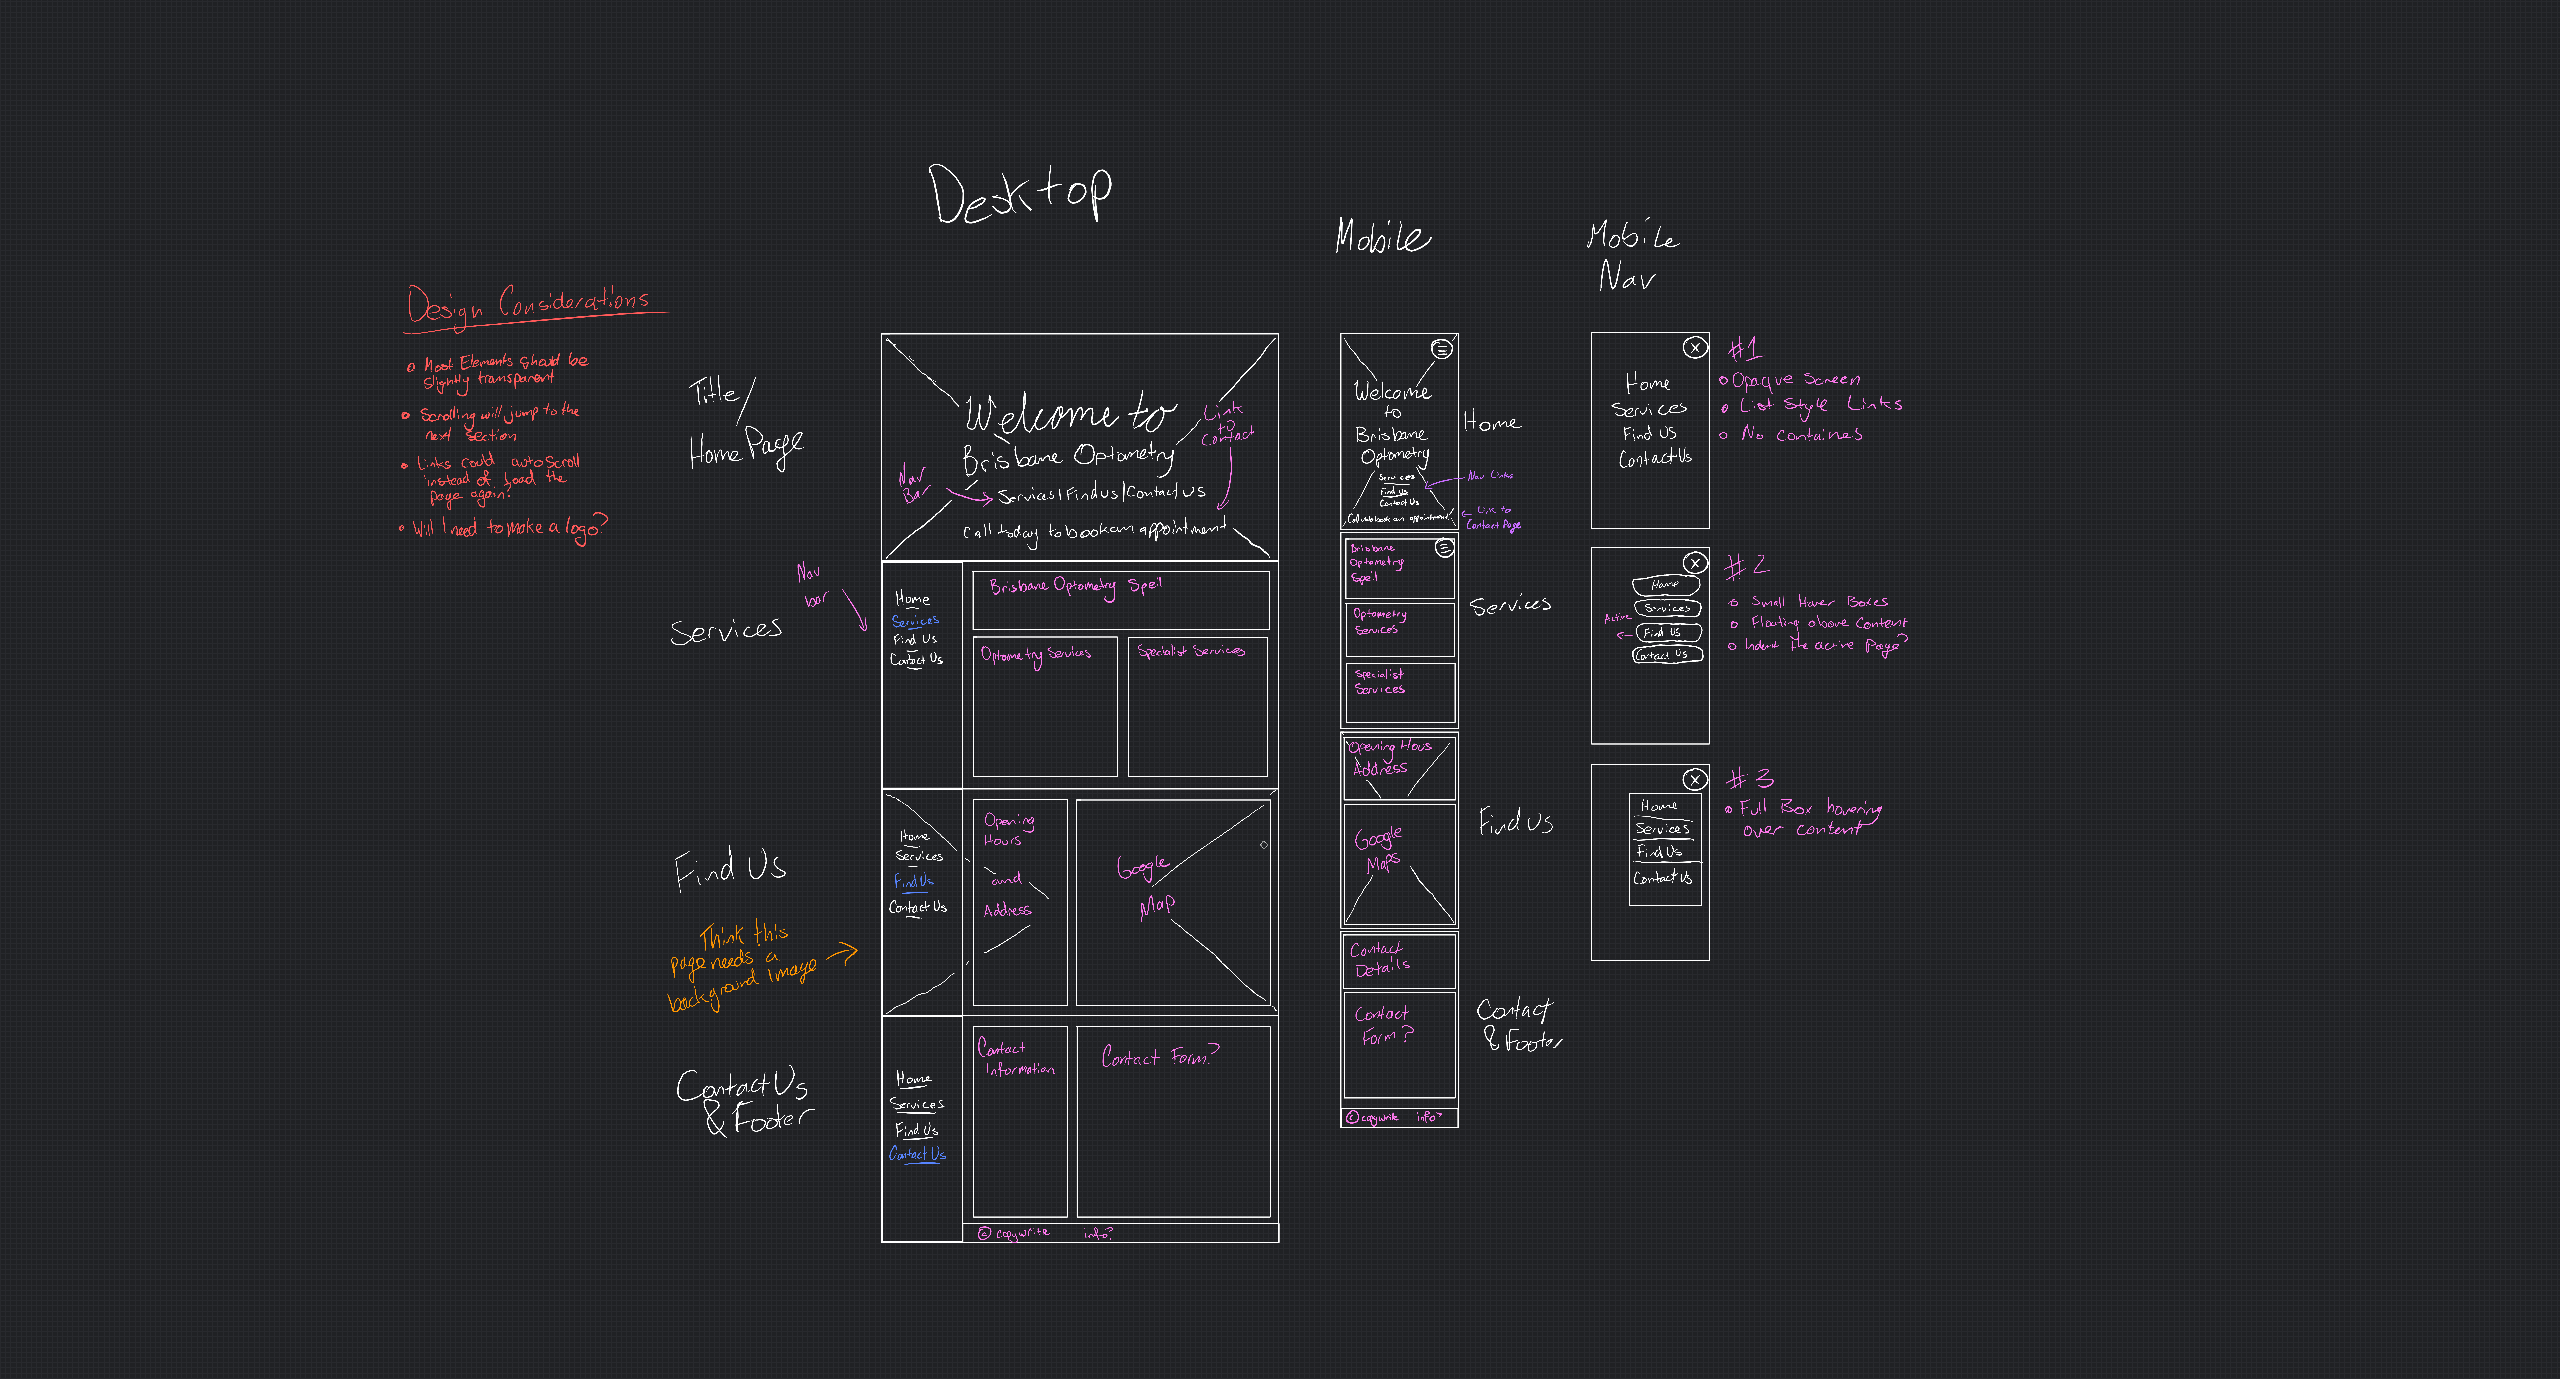 Desktop
Mobile
Mobile
Nav
Design Considerations
Most Elements should be
slightly transparent
Scrolling will jump to the
next section
Links could auto scroll
instead of load the
page again?
Will I need to make a logo?
Title/
Home Page
Welcome to
Brisbane Optometry
Services | Find us | Contact us
Call today to book an appointment
Nav
Bar
Link
to
Contact
Services
Nav
bar
Home
Services
Find Us
Contact Us
Brisbane Optometry Speil
Optometry Services
Specialist Services
Find Us
Think this
page needs a
background image
Home
Services
Find Us
Contact Us
Opening
Hours
and
Address
Google
Map
Contact Us
& Footer
Home
Services
Find Us
Contact Us
Contact
Information
Contact Form?
© copywrite info?
Welcome
to
Brisbane
Optometry
Services
Find Us
Contact Us
Call to book an appointment
Home
Nav Links
Link to
Contact Page
Brisbane
Optometry
Speil
Optometry
Services
Specialist
Services
Services
Opening Hous
Address
Google
Maps
Find Us
Contact
Details
Contact
Form?
Contact
& Footer
© copywrite info?
X
Home
Services
Find Us
Contact Us
#1
Opaque Screen
List Style Links
No Containes
X
Home
Services
Find Us
Contact Us
Active
#2
Small Hover Boxes
Floating above Content
Indent the active Page?
X
Home
Services
Find Us
Contact Us
#3
Full Box hovering
over content